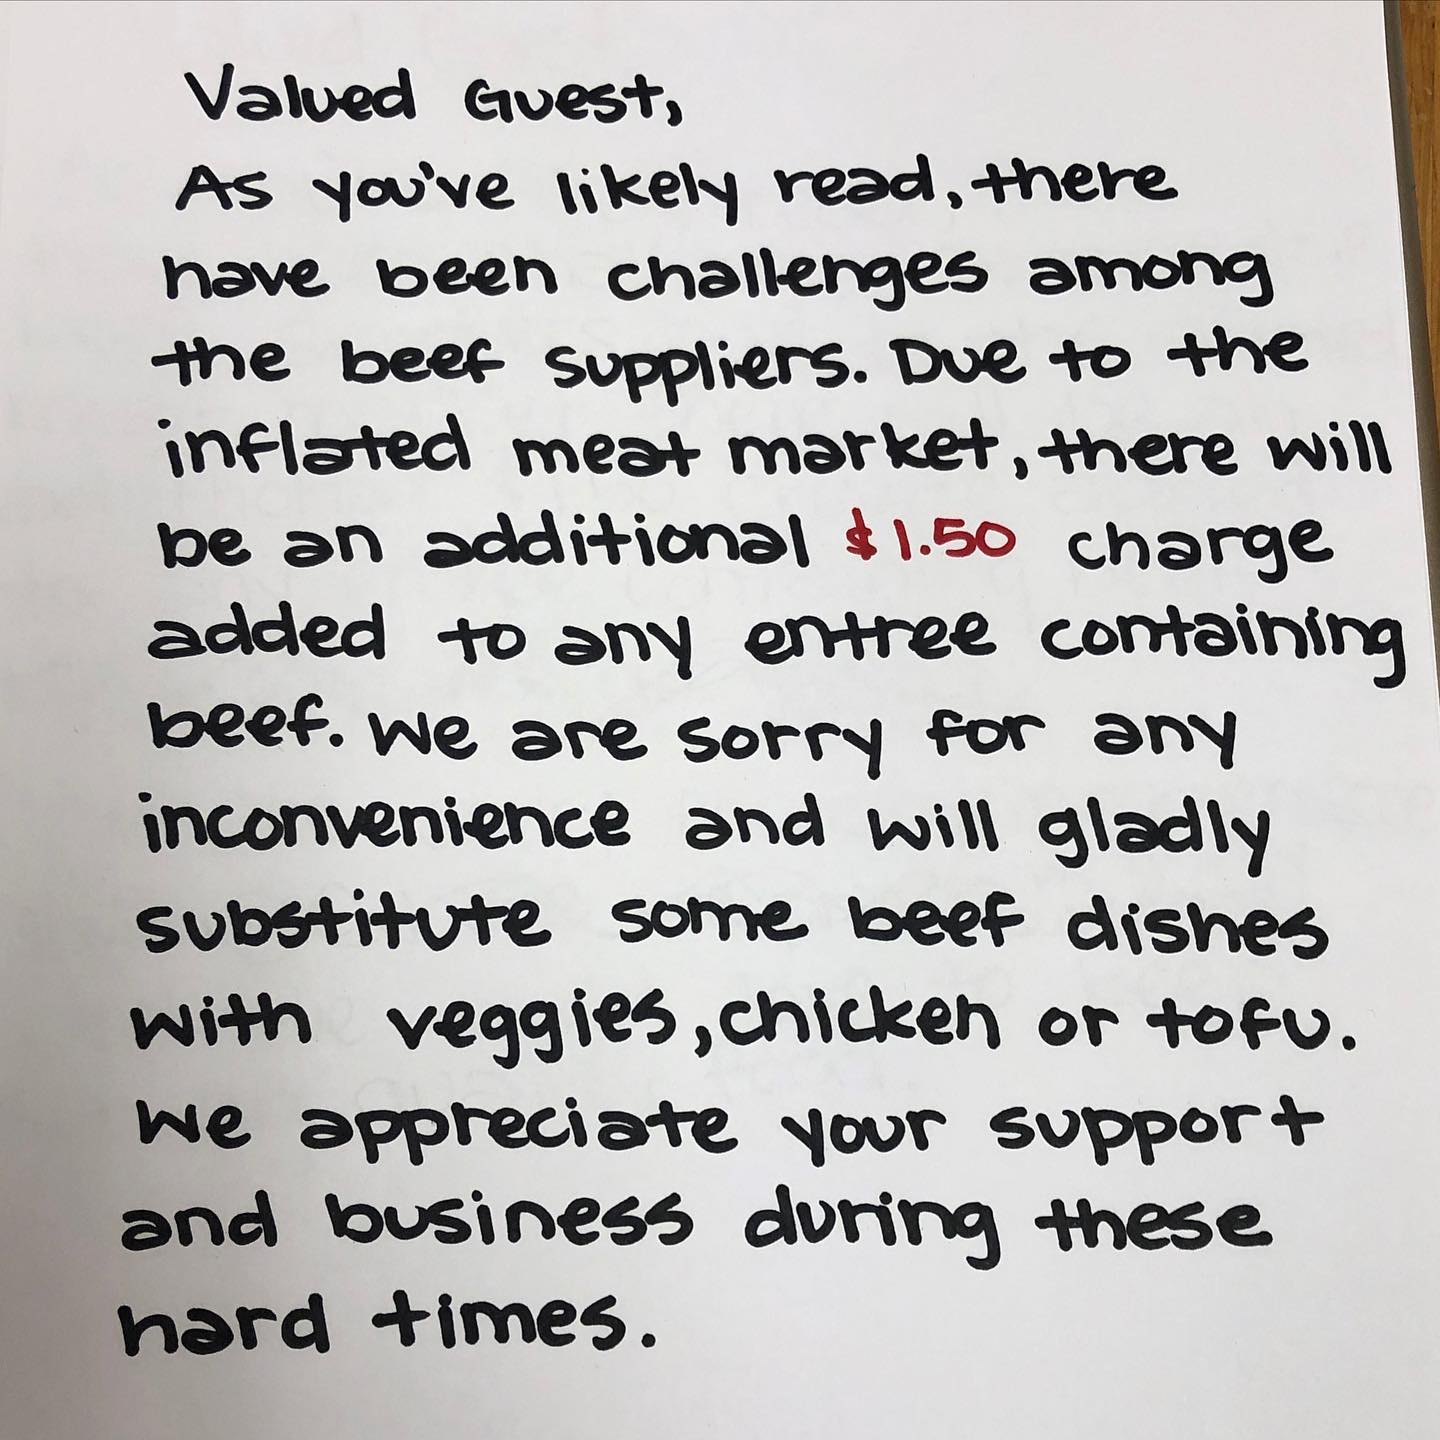 Valued Guest,
As you've likely read, there
have been challenges among
the beef suppliers. Due to the
inflated meat market, there will
be an additional $1.50 charge
added to any entree containing
beef. We are sorry for any
inconvenience and will gladly
substitute some beef dishes
with veggies, chicken or tofu.
We appreciate your support
and business during these
hard times.